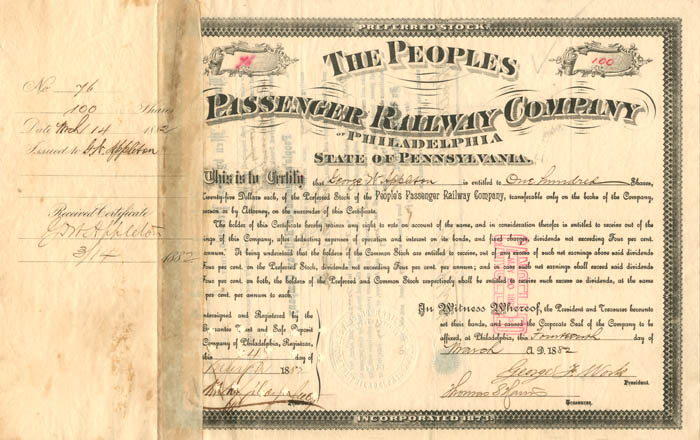 No 76
100 Shares
Date Mch 14 1882
Issued to G. W. Appleton
Received Certificate
G W Appleton
3/14 1882
PREFERRED STOCK.
76
100
THE PEOPLES
PASSENGER RAILWAY COMPANY
OF PHILADELPHIA
STATE OF PENNSYLVANIA.
This is to Certify that George W Appleton is entitled to One hundred Shares,
Twenty-five Dollars each, of the Preferred Stock of the People's Passenger Railway Company, transferable only on the books of the Company,
person or by Attorney, on the surrender of this Certificate.
The holders of this Certificate hereby waives any right to vote on account of the name, and in consideration thereof is entitled to receive
ings of this Company, after deducting expenses of operation and interest on its bonds, and fixed charges, dividends not exceeding Four per cent.
annum. It being understood that the holders of the Common Stock are entitled to receive, out of any excess of such net earnings above said dividends
Four per cent. on the Preferred Stock, dividends not exceeding Four per cent. per annum; and in case such net earnings shall exceed said dividends
Four per cent. on both, the holders of the Preferred and Common Stock respectively shall be entitled to receive such excess as dividends, at the same
per cent. per annum to each.
Countersigned and Registered by the
Guarantee Trust and Safe Deposit
Company of Philadelphia, Registrar,
this 14 day of
1882
In Witness Whereof, the President and Treasurer hereunto
set their hands, and caused the Corporate Seal of the Company to be
affixed, at Philadelphia, this Fourteenth day of
March A. D. 1882
George H Work
President.
Thomas S Harris
Treasurer.
INCORPORATED 1873